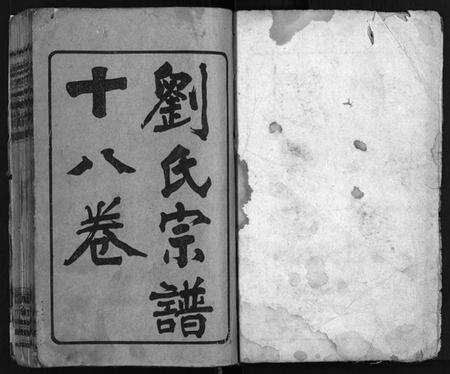 劉氏宗譜
十八卷